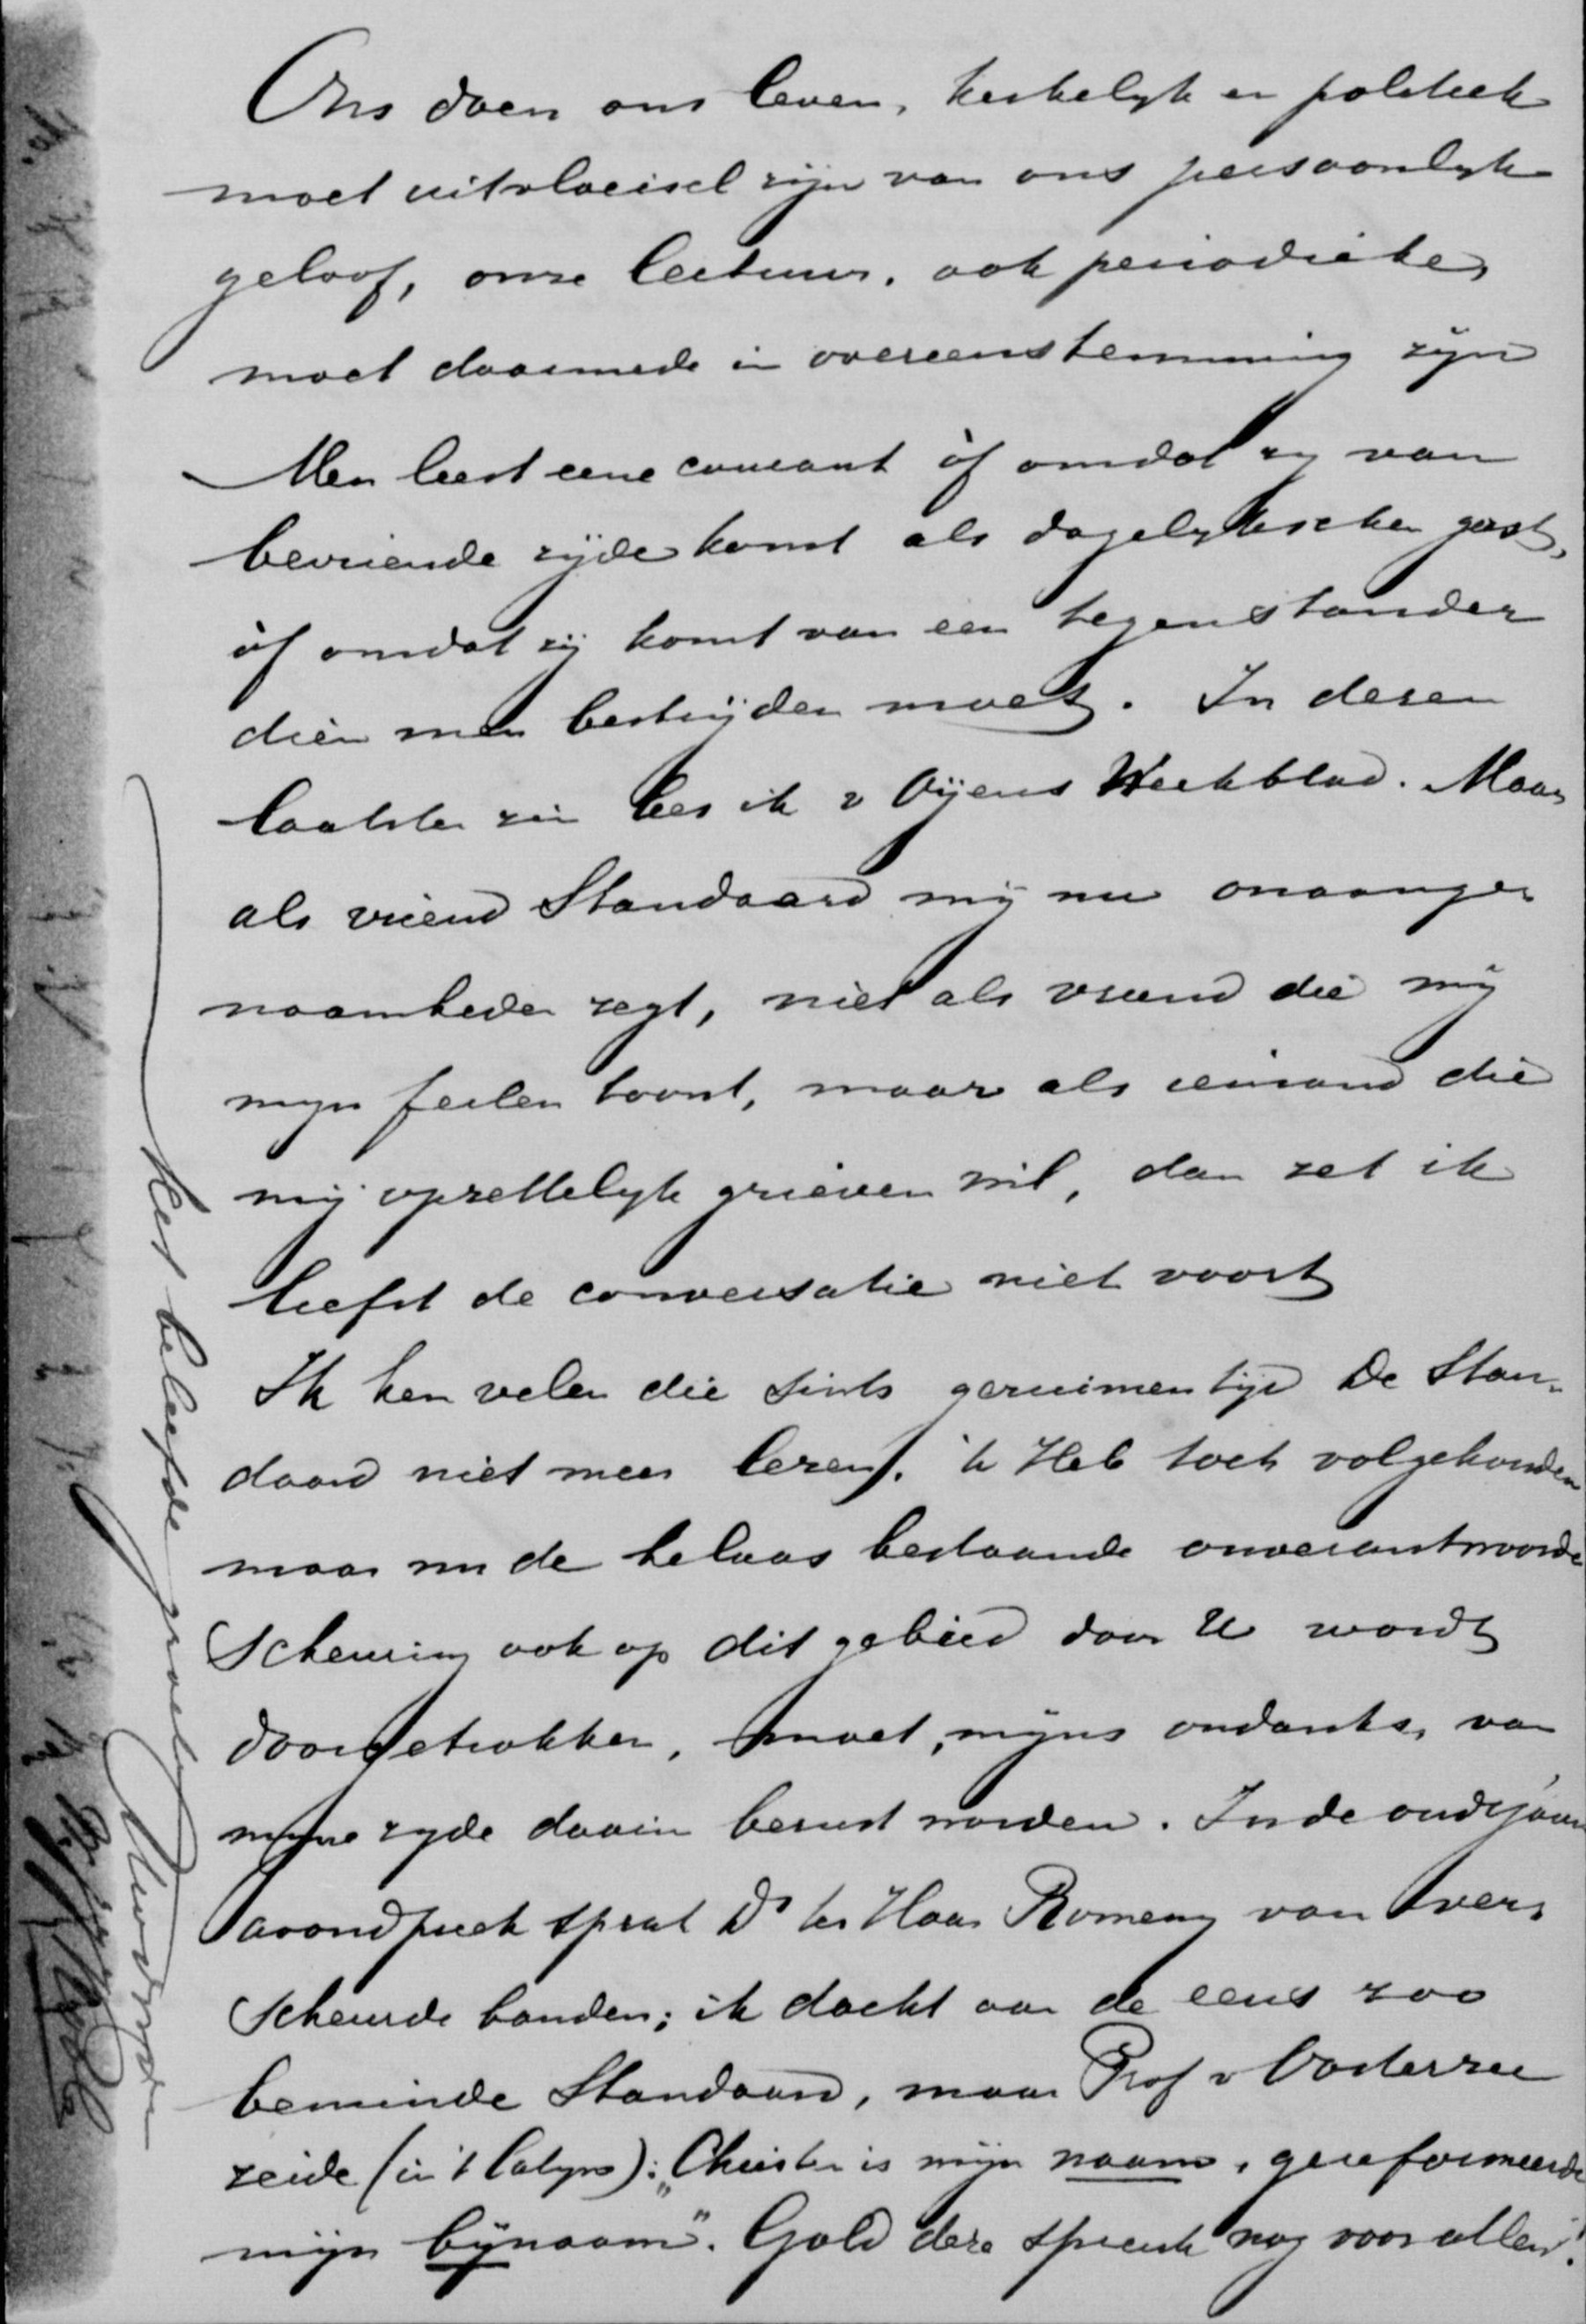 Ons doen ons leven, kerkelyk en politiek
moet uitvloeisel zijn van ons persoonlyk
geloof, onze lectuur, ook periodieke,
moet daarmede in overeenstemming zyn
Men leest eene courant òf omdat zy van
bevriende zijde komt als dagelykschen gast,
òf omdat zij komt van een tegenstander
dien men bestrijden moet. In dezen
laatsten zin lees ik v Oijens Weekblad. Maar
als vriend Standaard mij nu onaange-
naamheden zegt, niet als vriend die mij
myn feilen toont, maar als iemand die
mij opzettelyk grieven wil, dan zet ik
liefst de conversatie niet voort
Ik ken velen die sints geruimen tijd De Stan-
daard niet meer lezen. ik Heb toch volgehouden
maar nu de helaas bestaande onverantwoorde
Scheuring ook op dit gebied door U wordt
doorgetrokken, moet, mijns ondanks, van
myne zyde daarin berust worden. In de oudejaars
avondpreek sprak Ds ter Haar Romeny van ver-
scheurde banden; ik dacht aan de eens zoo
beminde Standaard, maar Prof v Oosterzee
zeide (in 't Latyn): „Christen is mijn naam, gereformeerde
mijn bijnaam". Gold deze spreuk nog voor allen!
Met beleefde groete